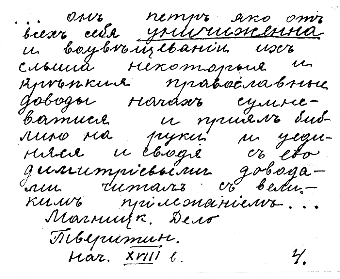 ... онъ петръ яко отъ
всехъ себя уничиженна
и воувѣщевании ихъ
слыша некоторыя и
крѣпкия православныя
доводы начахъ сумне-
ватися и приямъ биб-
лию на руки и уеди-
няся и сводя съ его
димитріевыми довода-
ми читалъ съ вели-
кимъ прілѣжаніемъ...
Магницк. Дело
Тверитин.
нач. XVIII в. 4.